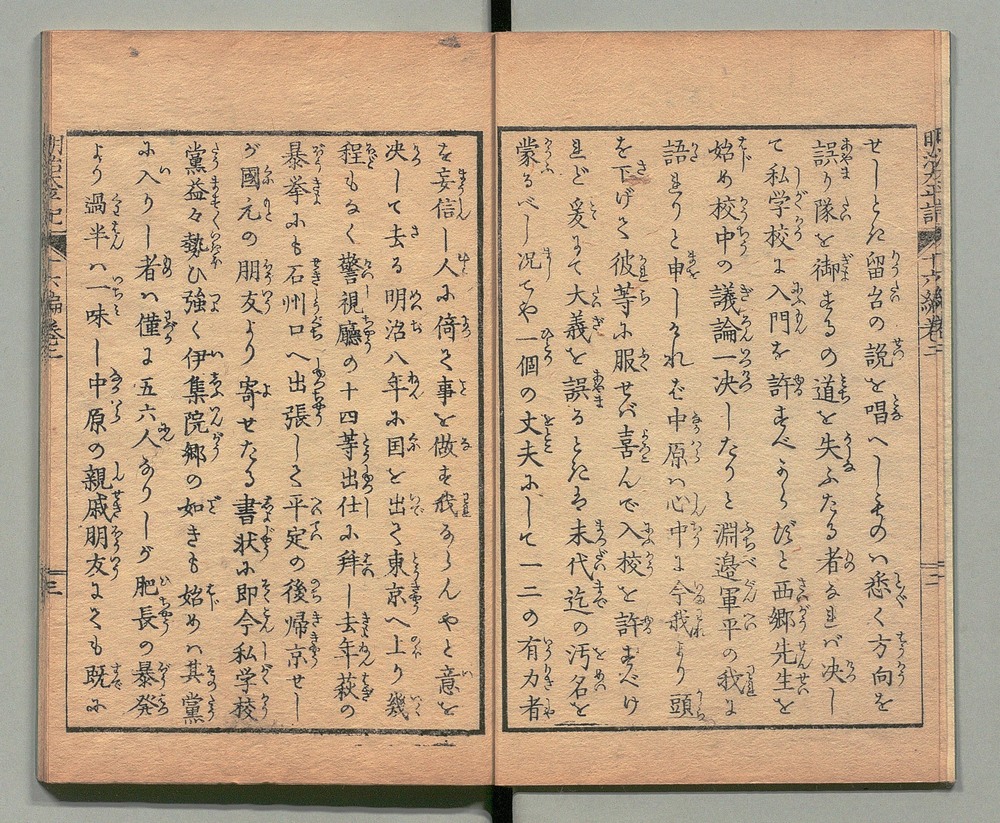 せしとに留台の説を唱へしものハ悉く方向を
誤り隊を御するの道を失ふたる者なれバ决し
て私学校に入門を許すべからずと西郷先生を
始め校中の議論一决したりと淵邉軍平の我に
語りと申しけれバ中原ハ心中に今我より頭
を下げて彼等に服せバ喜んで入校を許すべけ
れど爰にて大義を誤るときハ末代迄の汚名を
蒙るべし况てや一個の丈夫にして一二の有力者
を妄信し人に倚て事を做す我ならんやと意を
决して去る明治八年に国を出て東京へ上り幾
程もなく警視廳の十四等出仕に拜し去年萩の
暴挙にも石州口へ出張して平定の後帰京せし
が國元の朋友より寄せたる書状に即今私学校
黨益々勢ひ強く伊集院郷の如きも始めハ其黨
に入りし者ハ僅に五六人なりしが肥長の暴発
より過半ハ一味し中原の親戚朋友にても既に
明治太平記
十六編巻二
二
明治太平記
十六編巻二
三